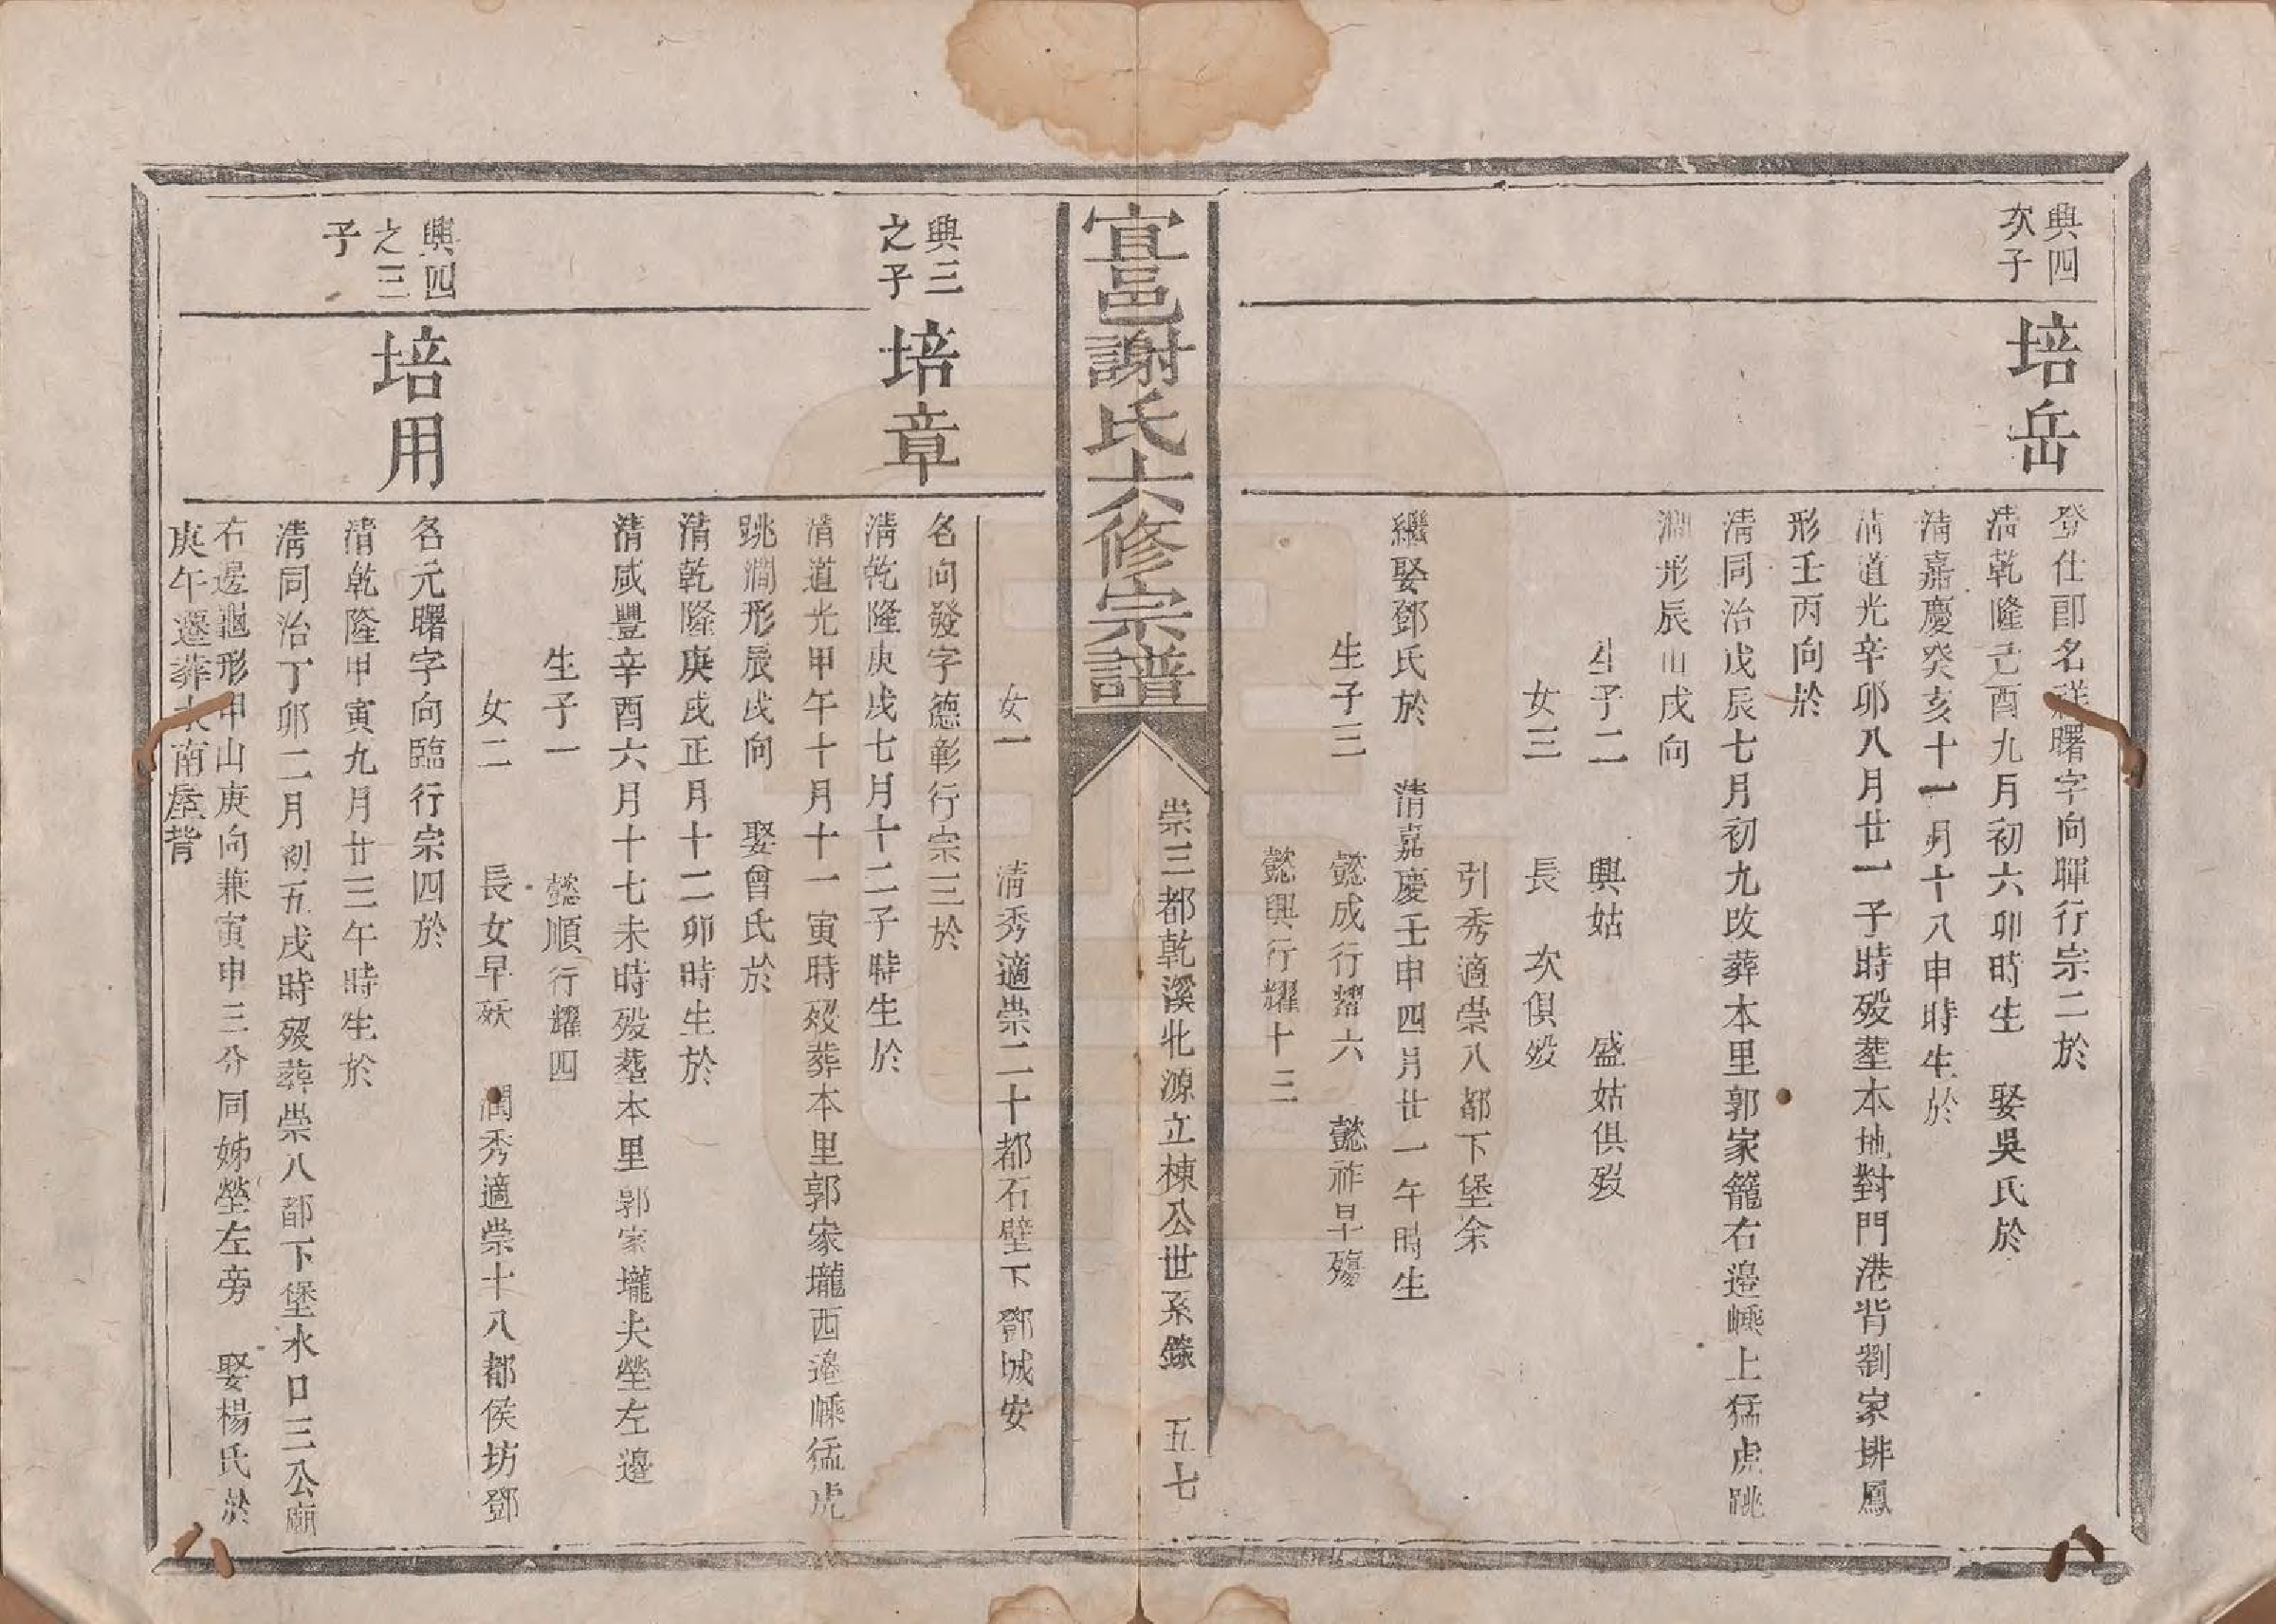 興四
次子
培岳
登仕郎名祥曙字向暉行宗二於
清乾隆己酉九月初六卯時生 娶吳氏於
清嘉慶癸亥十一月十八申時生於
清道光辛卯八月廿一子時歿塟本地對門港背劉家排鳳
形壬丙向於
清同治戊辰七月初九改葬本里郭家籠右邉㠗上猛虎跳
澗形辰山戌向
生子二 興姑 盛姑俱歿
女三 長 次俱歿
引秀適崇八都下堡余
繼娶鄧氏於 清嘉慶壬申四月廿一午時生
生子三 懿成行耀六 懿祚早殤
懿興行耀十三
宜邑謝氏六修宗譜
崇三都乾溪北源立棟公世系錄 五七
女一 清秀適崇二十都石壁下鄧城安
興三
之子
培章
名向發字德彰行宗三於
清乾隆庚戌七月十二子時生於
清道光甲午十月十一寅時歿葬本里郭家壠西邉㠗猛虎
跳澗形辰戌向 娶曾氏於
清乾隆庚戌正月十二卯時生於
清咸豐辛酉六月十七未時歿塟本里郭家壠夫塋左邊
生子一 懿順行耀四
女二 長女早殀 潤秀適崇十八都侯坊鄧
興四
之三
子
培用
名元曙字向臨行宗四於
清乾隆甲寅九月廿三午時生於
清同治丁卯二月初五戌時歿葬崇八都下堡水口三公廟
右邊龜形甲山庚向兼寅申三分同姊塋左旁 娶楊氏於
庚午遷葬水南屋背